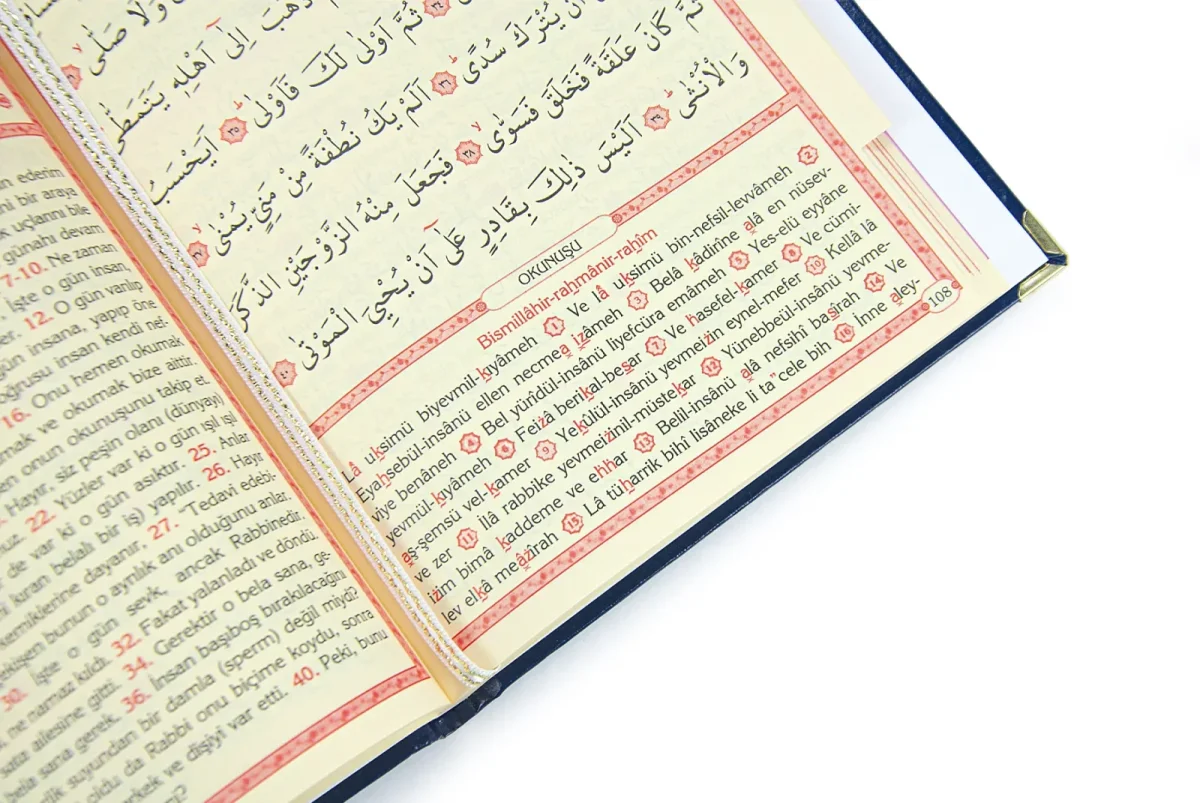 ederim
bir araya
uçlarını bile
günahı devam
7-10. Ne zaman
İşte o gün insan,
12. O gün varılıp
gün insana, yapıp öne
doğrusu insan kendi nef-
16. Onu hemen okumak
mak ve okumak bize aittir.
onun okunuşunu takip et.
Hayır, siz peşin olanı (dünyayı)
22. Yüzler var ki o gün ışıl ışıl
de var ki o gün asıktır. 25. Anlar
kıran belalı bir iş) yapılır. 26. Hayır
kemiklerine dayanır, 27. "Tedavi edebi-
bunun o ayrılık anı olduğunu anlar.
30. İşte o gün sevk, ancak Rabbinedir.
ne namaz kıldı. 32. Fakat yalanladı ve döndü.
ailesine gitti. 34. Gerektir o bela sana, ge-
bela sana gerek. 36. İnsan başıboş bırakılacağını
suyundan bir damla (sperm) değil miydi?
oldu da Rabbi onu biçime koydu, sonra
erkek ve dişiyi var etti. 40. Peki, bunu
وَلَا صَلّٰى ٣١
ذَهَبَ اِلٰٓى اَهْلِه۪ يَتَمَطّٰى
٣٤ ثُمَّ اَوْلٰى لَكَ فَاَوْلٰى ٣٥ اَيَحْسَبُ
اَنْ يُتْرَكَ سُدًى ٣٦ اَلَمْ يَكُ نُطْفَةً مِنْ مَنِيٍّ يُمْنٰى ٣٧
ثُمَّ كَانَ عَلَقَةً فَخَلَقَ فَسَوّٰى ٣٨ فَجَعَلَ مِنْهُ الزَّوْجَيْنِ الذَّكَرَ
وَالْاُنْثٰى ٣٩ اَلَيْسَ ذٰلِكَ بِقَادِرٍ عَلٰٓى اَنْ يُحْيِيَ الْمَوْتٰى ٤٠
OKUNUŞU
Bismillâhir-rahmânir-rahîm
Lâ uksimü biyevmil-kıyâmeh 1 Ve lâ uksimü bin-nefsil-levvâmeh 2
Eyahsebül-insânü ellen necmea ızâmeh 3 Belâ kâdirîne alâ en nüsev-
viye benâneh 4 Bel yürîdül-insânü liyefcüra emâmeh 5 Yes-elü eyyâne
yevmül-kıyâmeh 6 Feizâ berikal-besar 7 Ve hasefel-kamer 8 Ve cümi-
aş-şemsü vel-kamer 9 Yekûlül-insânü yevmeizin eynel-mefer 10 Kellâ lâ
ve zer 11 İlâ rabbike yevmeizinil-müstekar 12 Yünebbeül-insânü yevme-
izim bimâ kaddeme ve ehhar 13 Belil-insânü alâ nefsihî basîrah 14 Ve
lev elkâ meâzîrah 15 Lâ tüharrik bihî lisâneke li ta"cele bih 16 İnne aley-
108